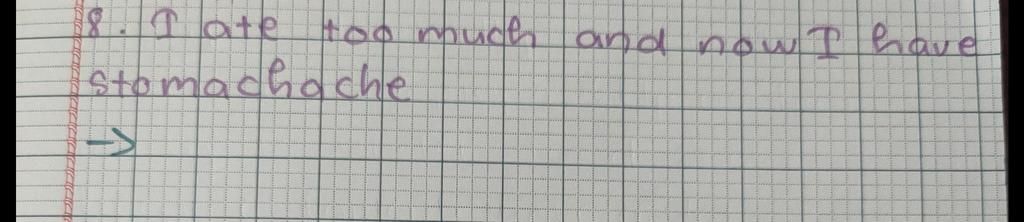 8. I ate too much and now I have
stomachache
→